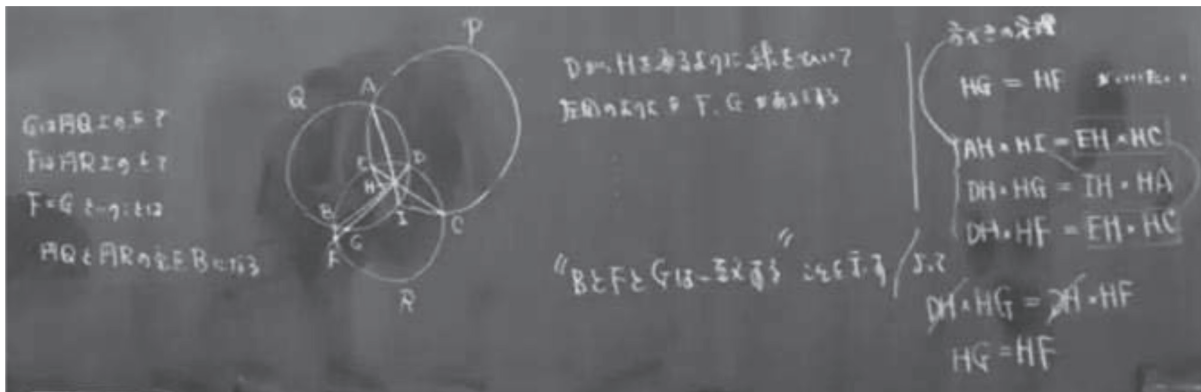 Gは円Q上の点で
Fは円R上の点で
F=Gということは
円Qと円Rの交点Bになる
P
Q
A
E
D
H
B
I
G
C
F
R
Dから、Hを通るように線をひいて
左図のように点F、Gがあるとする
"BとFとGは一致する"ことを示す
方べきの定理
HG = HF
AH × HI = EH × HC
DH × HG = IH × HA
DH × HF = EH × HC
よって
DH × HG = DH × HF
HG = HF